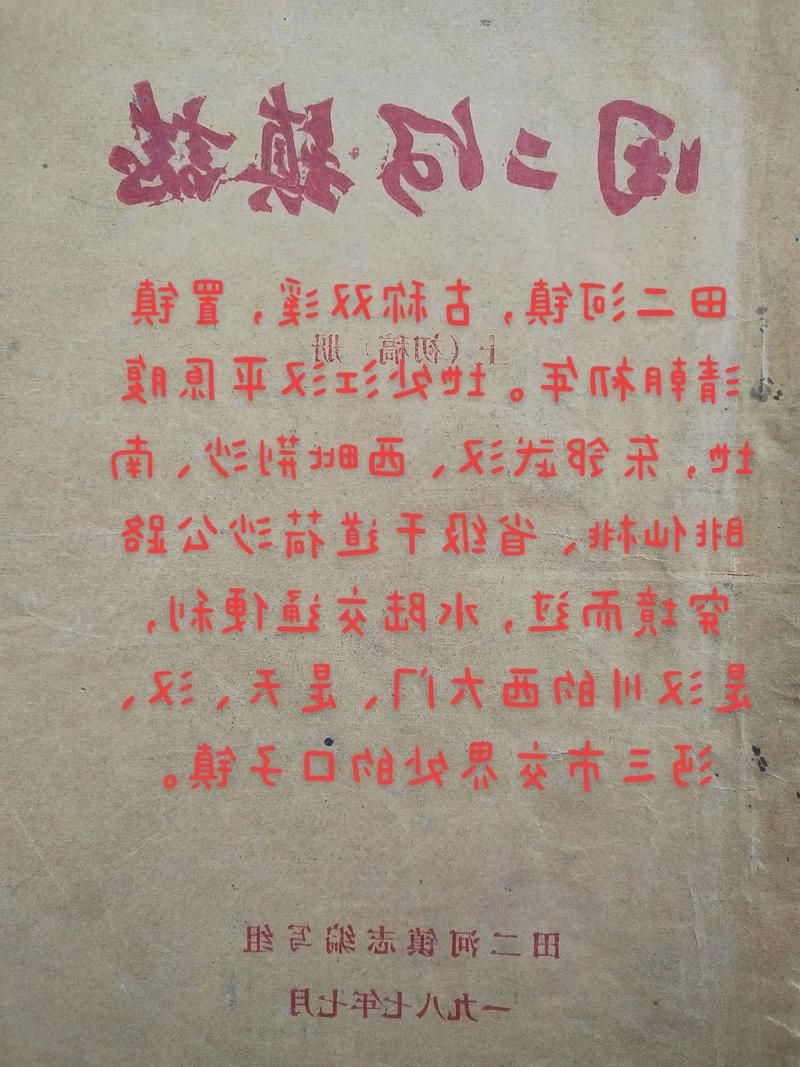 田二河镇誌
上（初稿）册
田二河镇，古称双溪，置镇
清朝初年。地处江汉平原腹
地，东邻武汉、西毗荆沙、南
眺仙桃、省级干道荷沙公路
穿境而过，水陆交通便利，
是汉川的西大门、是天、汉、
沔三市交界处的口子镇。
田二河镇志编写组
一九八七年七月